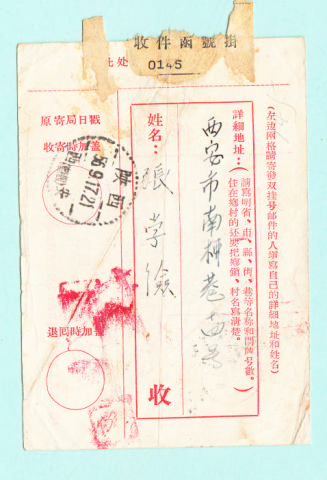 掛號函件收
0145
此处
(左边两格請寄發双挂号郵件的人填寫自己的詳細地址和姓名)
詳細地址：(請寫明省、市、縣、街、巷等名称和門牌号数。
住在鄉村的还要把鄉鎮、村名寫清楚。)
西安市南柳巷
姓名：
張学儉
收
原寄局日戳
收寄時加盖
陝西
56.9.17.21
退囘時加